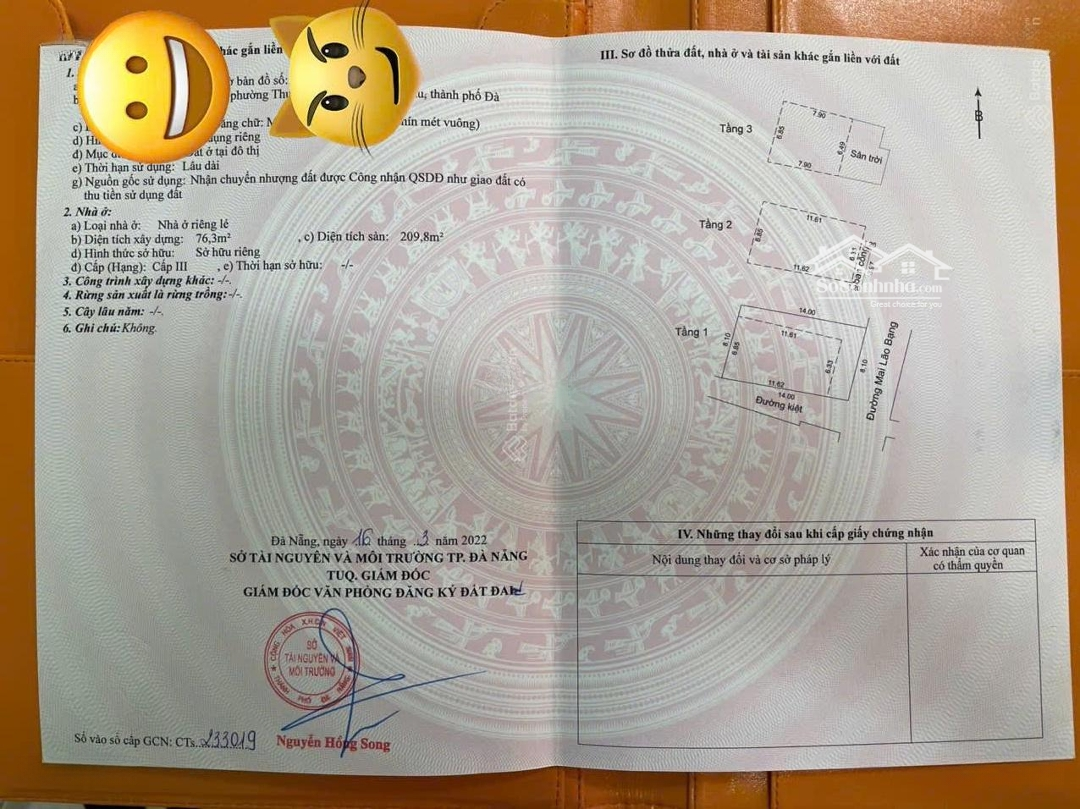 hác gắn liền
1.
ờ bản đồ số:
phường Thu
u, thành phố Đà
c)
ằng chữ: M
hín mét vuông)
d) Hì
dụng riêng
đ) Mục đ
ất ở tại đô thị
e) Thời hạn sử dụng: Lâu dài
g) Nguồn gốc sử dụng: Nhận chuyển nhượng đất được Công nhận QSDĐ như giao đất có
thu tiền sử dụng đất
2. Nhà ở:
a) Loại nhà ở: Nhà ở riêng lẻ
b) Diện tích xây dựng: 76,3m² , c) Diện tích sàn: 209,8m²
d) Hình thức sở hữu: Sở hữu riêng
đ) Cấp (Hạng): Cấp III , e) Thời hạn sở hữu: -/-
3. Công trình xây dựng khác: -/-.
4. Rừng sản xuất là rừng trồng:-/-.
5. Cây lâu năm: -/-.
6. Ghi chú: Không.
Đà Nẵng, ngày 16 tháng 3 năm 2022
SỞ TÀI NGUYÊN VÀ MÔI TRƯỜNG TP. ĐÀ NẴNG
TUQ. GIÁM ĐỐC
GIÁM ĐỐC VĂN PHÒNG ĐĂNG KÝ ĐẤT ĐAI
CỘNG HÒA X.H.C.N VIỆT NAM
SỞ
TÀI NGUYÊN VÀ
MÔI TRƯỜNG
THÀNH PHỐ ĐÀ NẴNG
Số vào sổ cấp GCN: CTs. 233019
Nguyễn Hồng Song
III. Sơ đồ thửa đất, nhà ở và tài sản khác gắn liền với đất
B
Tầng 3
7.90
6.85
6.49
7.90
Sân trời
Tầng 2
11.61
6.85
11.62
ban công
Sosanhnha.com
Great choice for you
Tầng 1
14.00
11.61
8.10
6.85
6.33
8.10
11.62
14.00
Đường kiệt
Đường Mai Lão Bạng
IV. Những thay đổi sau khi cấp giấy chứng nhận
Nội dung thay đổi và cơ sở pháp lý
Xác nhận của cơ quan
có thẩm quyền